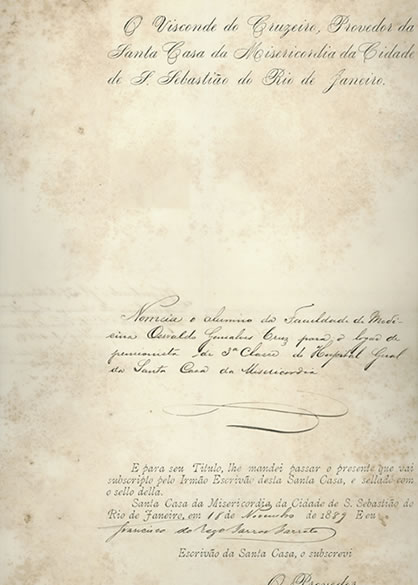 O Visconde do Cruzeiro, Provedor da
Santa Casa da Misericordia da Cidade
de S. Sebastião do Rio de Janeiro.
Nomeia o alumno da Faculdade de Medi-
cina Oswaldo Gonçalves Cruz para o logar de
pensionista de 3ª Classe do Hospital Geral
da Santa Casa da Misericordia
E para seu Titulo, lhe mandei passar o presente que vai
subscripto pelo Irmão Escrivão desta Santa Casa, e sellado com
o sello della.
Santa Casa da Misericordia da Cidade de S. Sebastião do
Rio de Janeiro, em 18 de Novembro de 1889 E eu
Francisco do Rego Barros Barreto
Escrivão da Santa Casa, o subscrevi
O Provedor